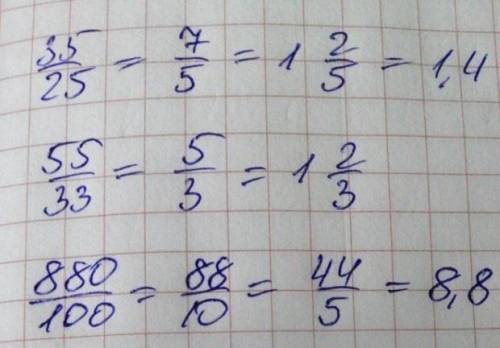 35/25 = 7/5 = 1 2/5 = 1,4
55/33 = 5/3 = 1 2/3
880/100 = 88/10 = 44/5 = 8,8